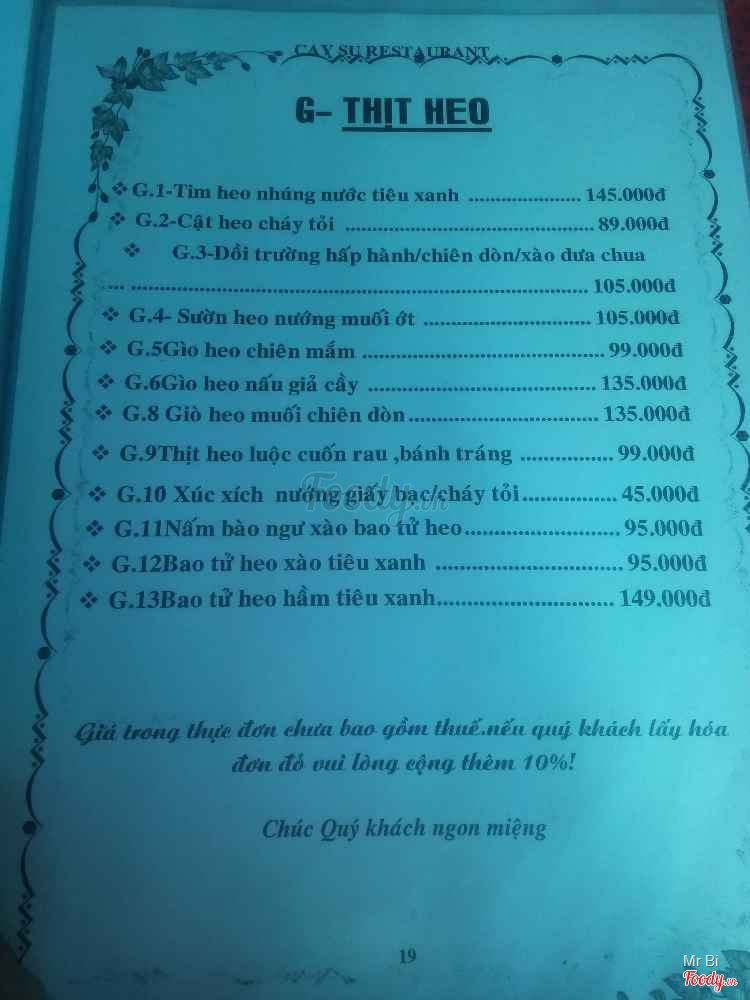 CAY SU RESTAURANT
G- THỊT HEO
G.1-Tim heo nhúng nước tiêu xanh ..................... 145.000đ
G.2-Cật heo cháy tỏi ............................................... 89.000đ
G.3-Dồi trường hấp hành/chiên dòn/xào dưa chua
... ...................................................................................... 105.000đ
G.4- Sườn heo nướng muối ớt ............................... 105.000đ
G.5Gìo heo chiên mắm ............................................. 99.000đ
G.6Gìo heo nấu giả cầy .......................................... 135.000đ
G.8 Giò heo muối chiên dòn................................... 135.000đ
G.9Thịt heo luộc cuốn rau ,bánh tráng ................. 99.000đ
G.10 Xúc xích nướng giấy bạc/cháy tỏi................. 45.000đ
G.11Nấm bào ngư xào bao tử heo............................. 95.000đ
G.12Bao tử heo xào tiêu xanh .................................. 95.000đ
G.13Bao tử heo hầm tiêu xanh................................ 149.000đ
Foody.vn
Giá trong thực đơn chưa bao gồm thuế.nếu quý khách lấy hóa
đơn đỏ vui lòng cộng thêm 10%!
Chúc Quý khách ngon miệng
19
Mr Bi
Foody.vn